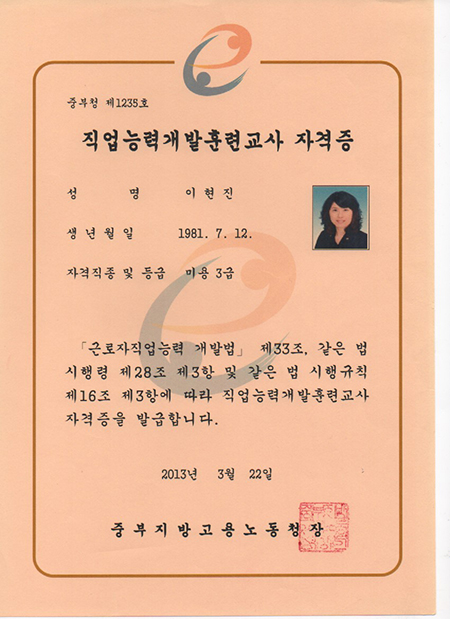 중부청 제1235호
직업능력개발훈련교사 자격증
성 명 이현진
생년월일 1981. 7. 12.
자격직종 및 등급 미용 3급
「근로자직업능력 개발법」 제33조, 같은 법
시행령 제28조 제3항 및 같은 법 시행규칙
제16조 제3항에 따라 직업능력개발훈련교사
자격증을 발급합니다.
2013년 3월 22일
중부지방고용노동청장